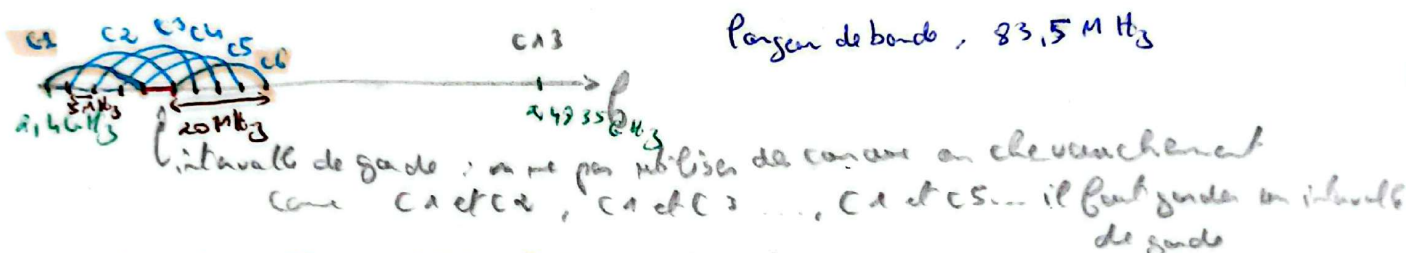 C1 C2 C3 C4 C5 C6 C13 largeur de bande, 83,5 MHz
5MHz 20MHz 2,4835 GHz f
2,4GHz
intervalle de garde : on ne pas utiliser des canaux en chevauchement
come C1 et C2, C1 et C3 ..., C1 et C5... il faut garder un intervalle
de garde